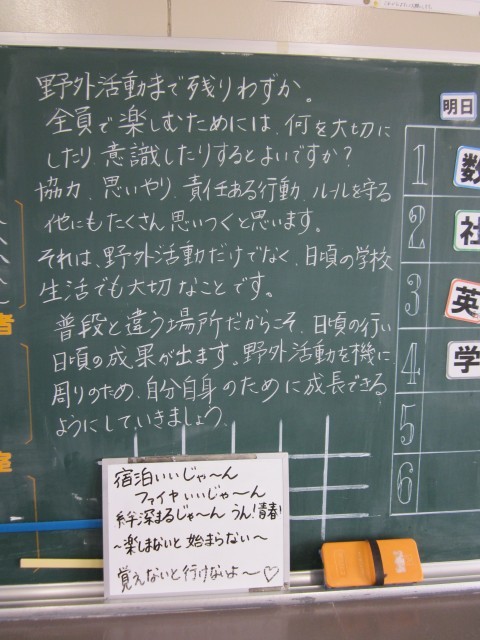 野外活動まで残りわずか。
全員で楽しむためには、何を大切に
したり、意識したりするとよいですか？
協力、思いやり、責任ある行動、ルールを守る
他にもたくさん思いつくと思います。
それは、野外活動だけでなく、日頃の学校
生活でも大切なことです。
普段と違う場所だからこそ、日頃の行い
日頃の成果が出ます。野外活動を機に、
周りのため、自分自身のために成長できる
ようにしていきましょう。
宿泊いいじゃ〜ん
ファイヤいいじゃ〜ん
絆深まるじゃ〜ん うん！青春！
〜楽しまないと始まらない〜
覚えないと行けないよ〜♡
明日
1 数
2 社
3 英
4 学
5
6
者
室